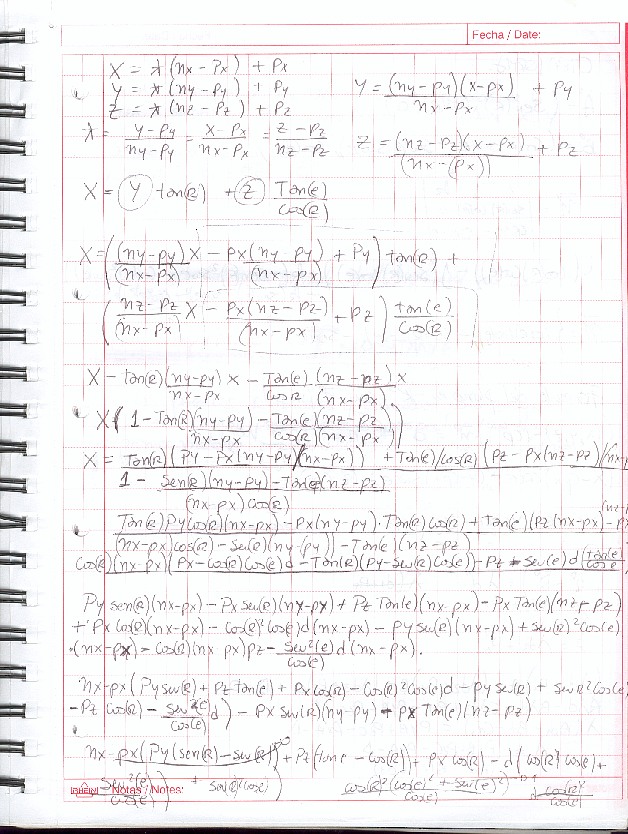 Fecha / Date:
X = λ(nx - Px) + Px
Y = λ(ny - Py) + Py
Z = λ(nz - Pz) + Pz
Y = (ny - Py)(x - px) / (nx - px) + Py
λ = (Y - Py)/(ny - Py) = (X - Px)/(nx - Px) = (Z - Pz)/(nz - Pz)
Z = (nz - Pz)(x - px) / (nx - (px)) + Pz
X = Y tan(R) + Z Tan(e)/cos(R)
X = ((ny-py)/(nx-px) X - px(ny-py)/(nx-px) + Py) tan(R) +
((nz-pz)/(nx-px) X - px(nz-pz)/(nx-px) + Pz) tan(e)/cos(R)
X - tan(R) (ny-py)/(nx-px) x - Tan(e)/cos R (nz-pz)/(nx-px) x
X (1 - Tan(R)(ny-py)/(nx-px) - Tan(e)(nz-pz)/cos(R)(nx-px))
X = Tan(R)(Py - Px(ny-py)/(nx-px)) + Tan(e)/cos(R) (Pz - Px(nz-pz)/(nx-
1 - Sen(R)(ny-py) - Tan(e)(nz-pz)
(nx-px) cos(R)
Tan(R) Py cos(R)(nx-px) - Px(ny-py) . Tan(R) cos(R) + Tan(e)(Pz(nx-px) - P
(nx-px) cos(R) - Sen(R)(ny-py) - Tan(e)(nz-pz)
cos(R)(nx-px)(Px - cos(R)cos(e)d - Tan(R)(Py - Sen(R)cos(e)) - Pz - Sen(e) d
Py sen(R)(nx-px) - Px sen(R)(nx-px) + Pz Tan(e)(nx-px) - Px Tan(e)(nz-pz)
+ Px cos(R)(nx-px) - cos(R)² cos(e) d(nx-px) - Py sen(R)(nx-px) + sen(R)² cos(e)
(nx-px) - cos(R)(nx-px)pz - Sen²(e)/cos(e) d(nx-px).
nx-px(Py sen(R) + Pz tan(e) + Px cos(R) - cos(R)² cos(e)d - Py sen(R) + sen R² cos(e)
- Pz cos(R) - Sen²(e)/cos(e) d) - Px sen(R)(ny-py) + px Tan(e)(nz-pz)
nx-px(Py(sen(R) - sen(R)) + Pz(tan e - cos(R)) + Px cos(R) - d(cos(R)² cos(e) +
Sen²(e)/cos(e)) + Sen(R)² cos(e)) cos(R)²(cos(e)² + sen(e)²)/cos(e) d cos(R)²/cos(e)
Notas / Notes: